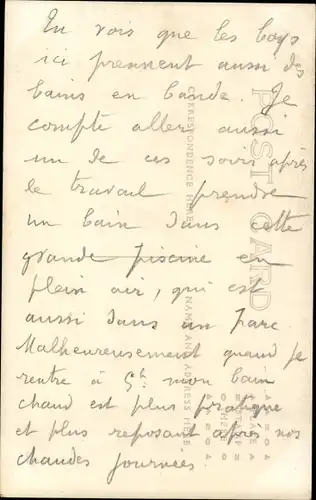 Tu vois que les boys
ici prennent aussi des
bains en bande. Je
compte aller aussi
un de ces soirs après
le travail prendre
un bain dans cette
grande piscine en
plein air, qui est
aussi dans un parc.
Malheureusement quand je
rentre à 5h mon bain
chaud est plus pratique
et plus reposant après nos
chaudes journées.
POST CARD
CORRESPONDENCE HERE
NAME AND ADDRESS HERE
PLACE
STAMP
HERE